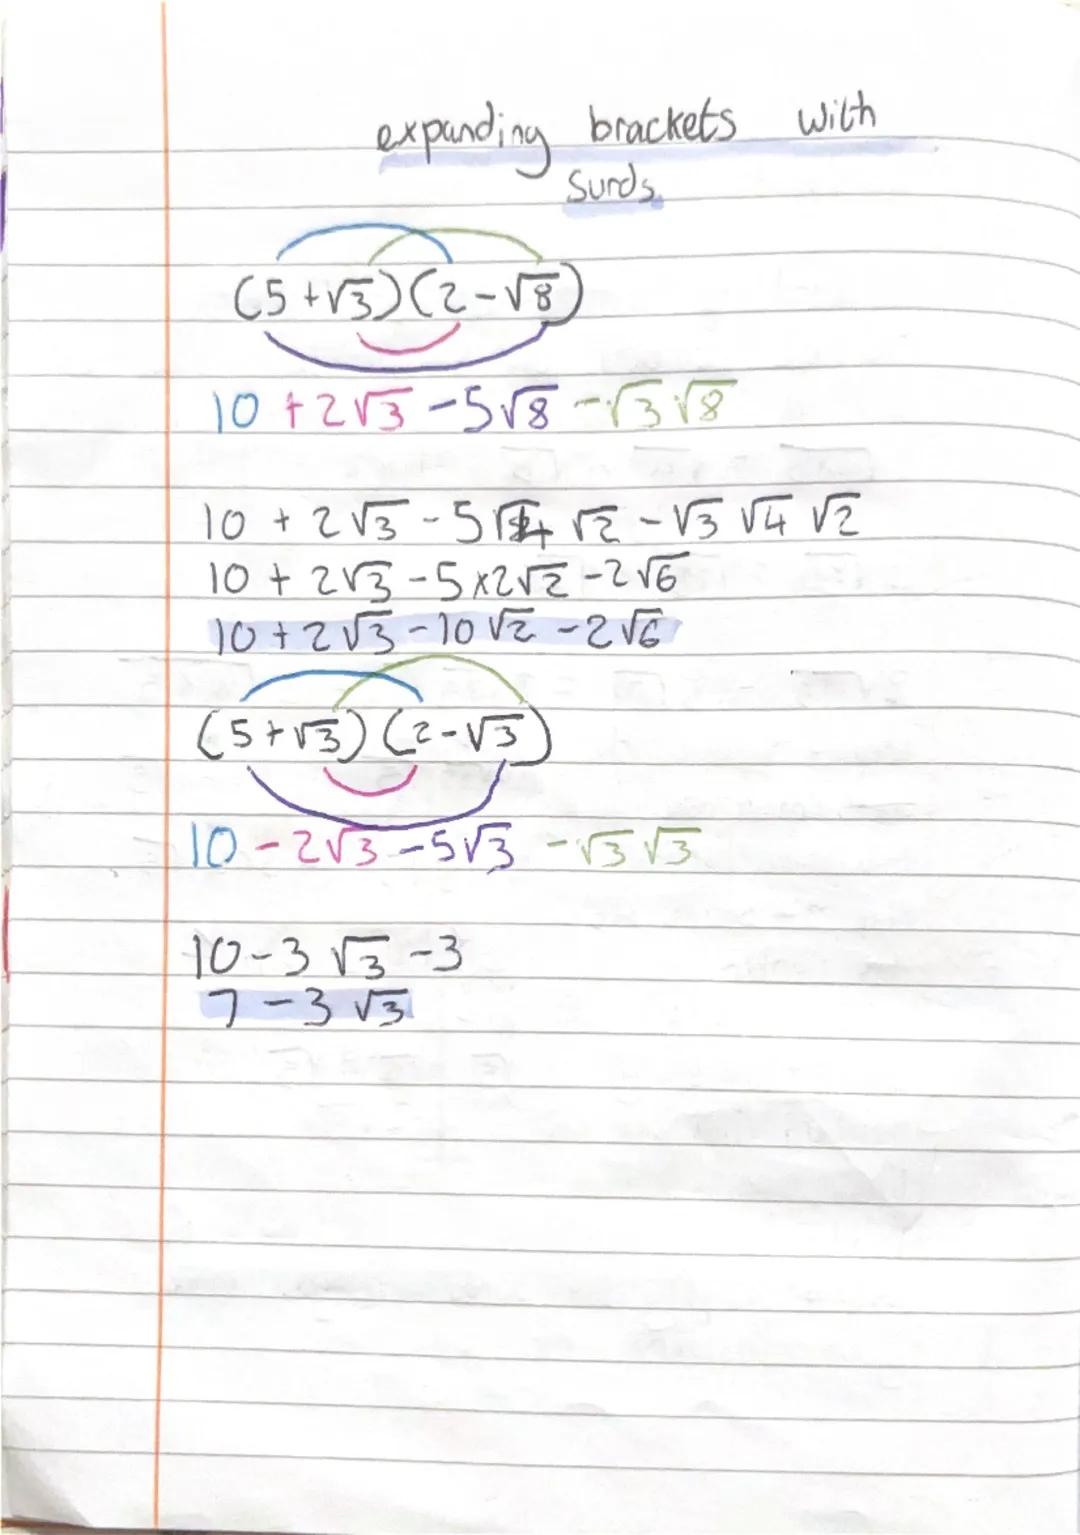 expanding brackets with
surds.
(5+√3)(2-√8)
10 + 2√3 - 5√8 - √3 √8
10 + 2√3 - 5√4 √2 - √3 √4 √2
10 + 2√3 - 5×2√2 - 2√6
10 + 2√3 - 10√2 - 2√6
(5+√3)(2-√3)
10 - 2√3 - 5√3 - √3 √3
10 - 3√3 - 3
7 - 3√3